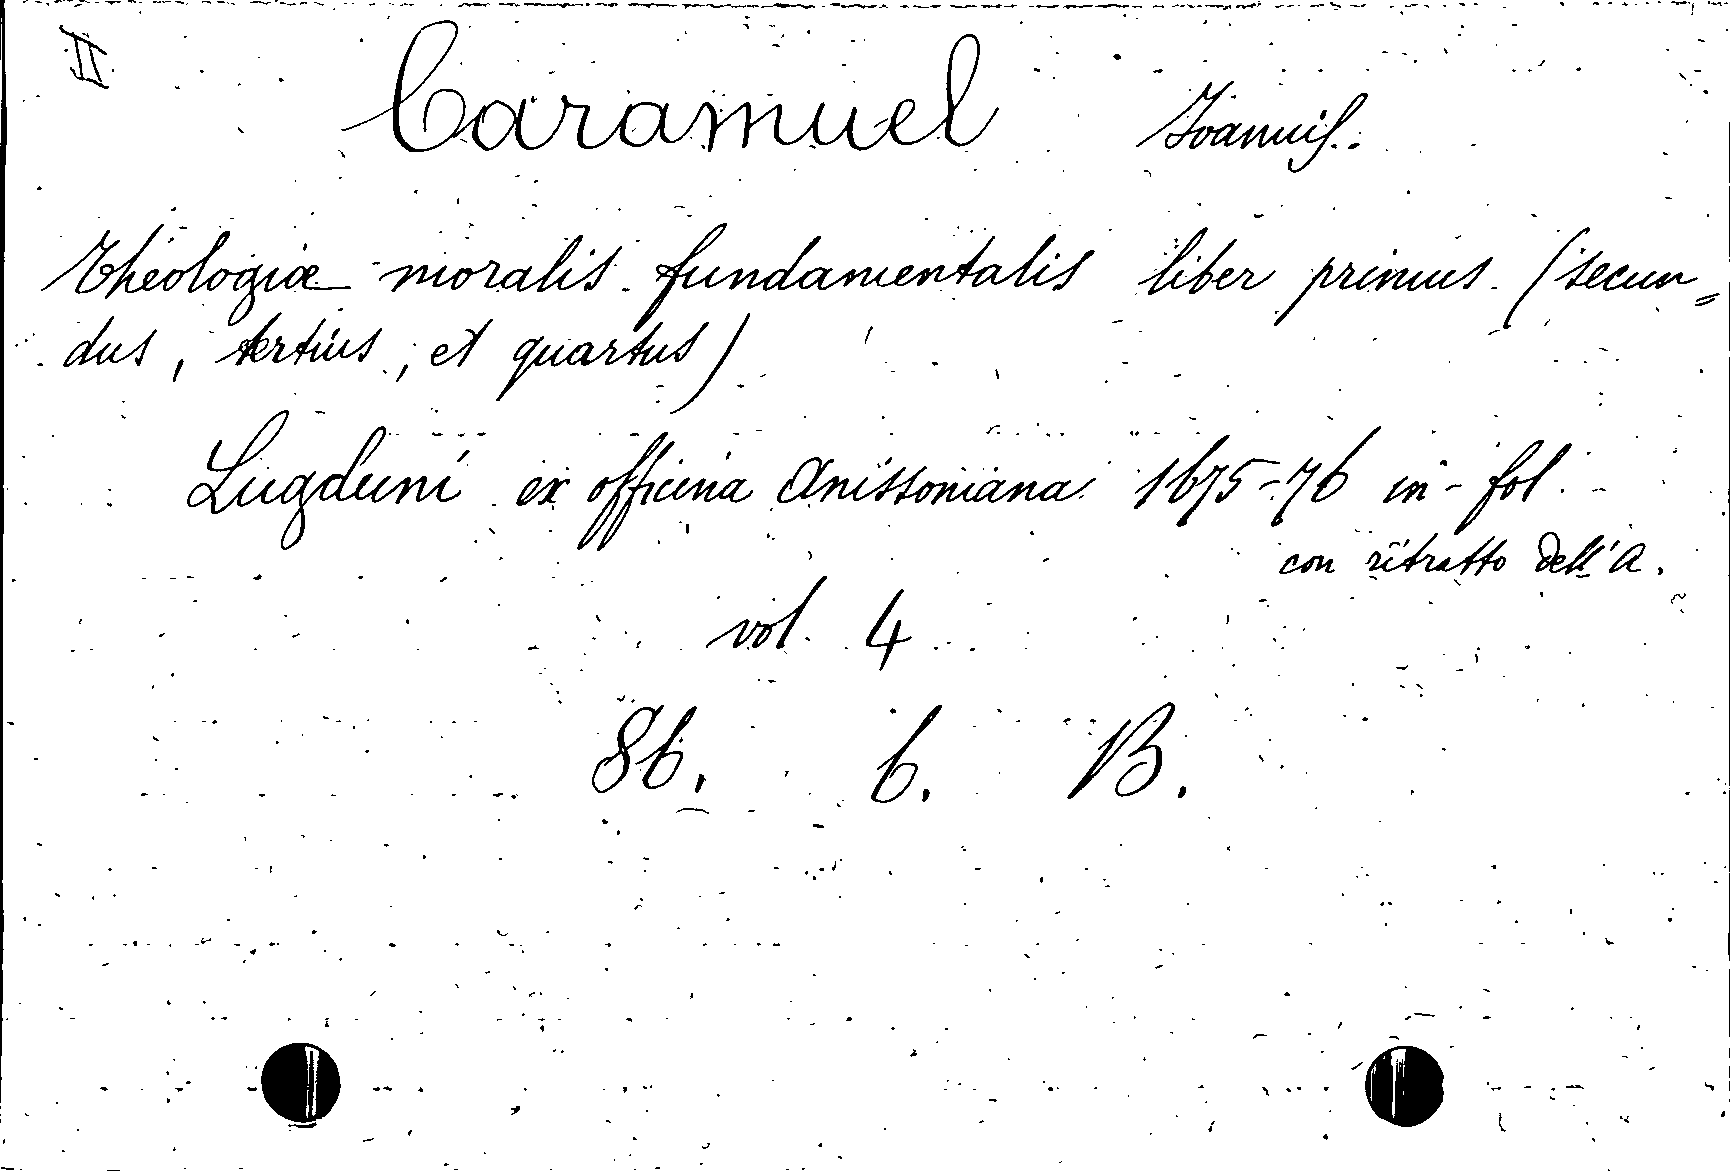 II
Caramuel Joannis.
Theologiæ moralis fundamentalis liber primus (secun=
dus, tertius, et quartus)
Lugduni ex officina Anissoniana 1675-76 in-fol.
con ritratto dell'A.
vol. 4
86. 6. B.